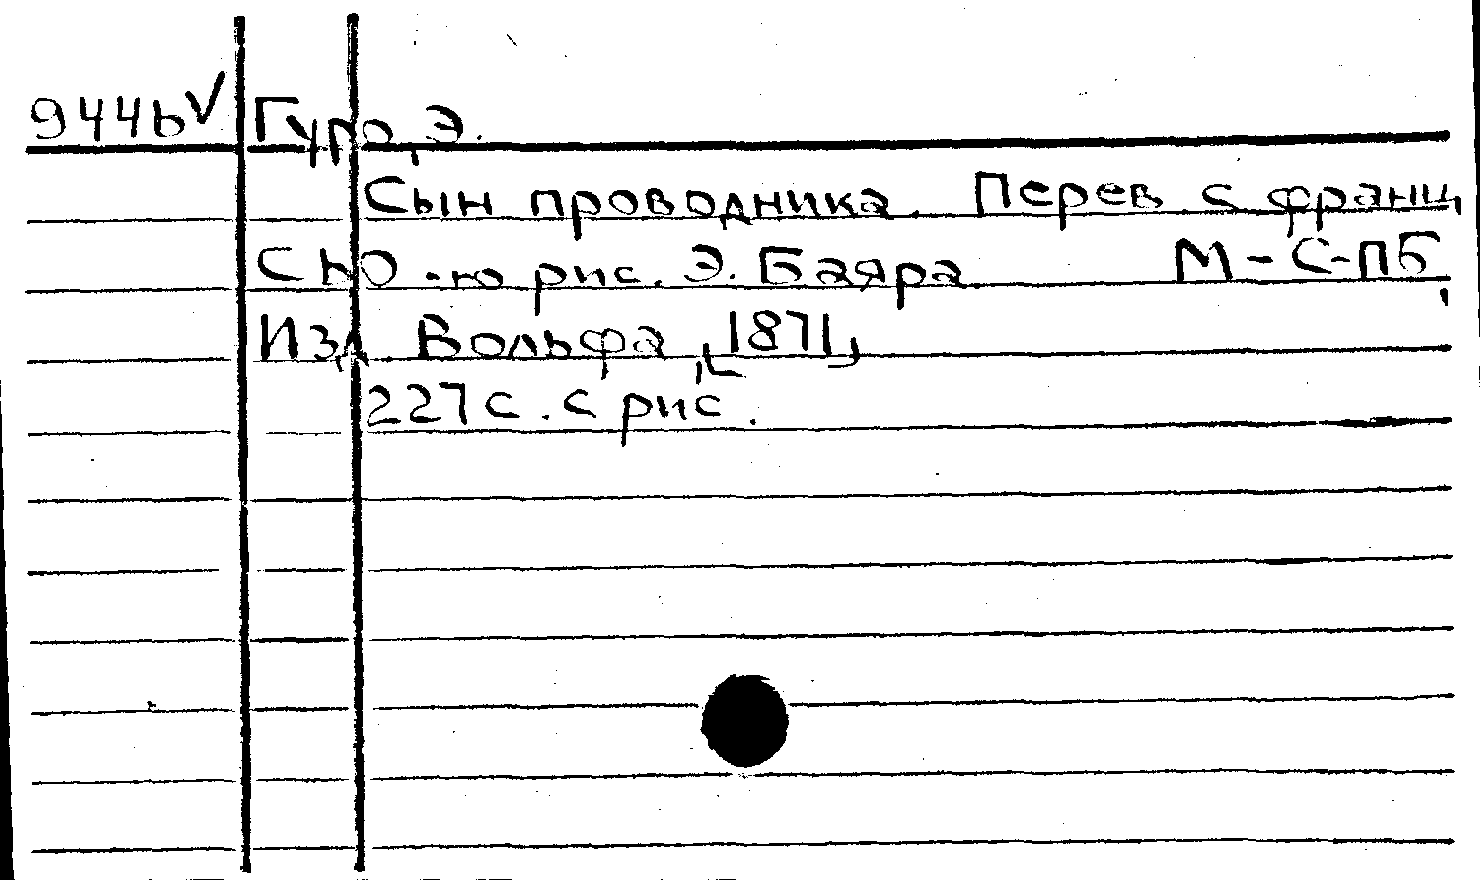 944b√ Гуро, Э.
Сын проводника. Перев с франц
С ЬО-ю рис. Э. Баяра М-С-ПБ,
Изд. Вольфа, [1871]
227 с. с рис.